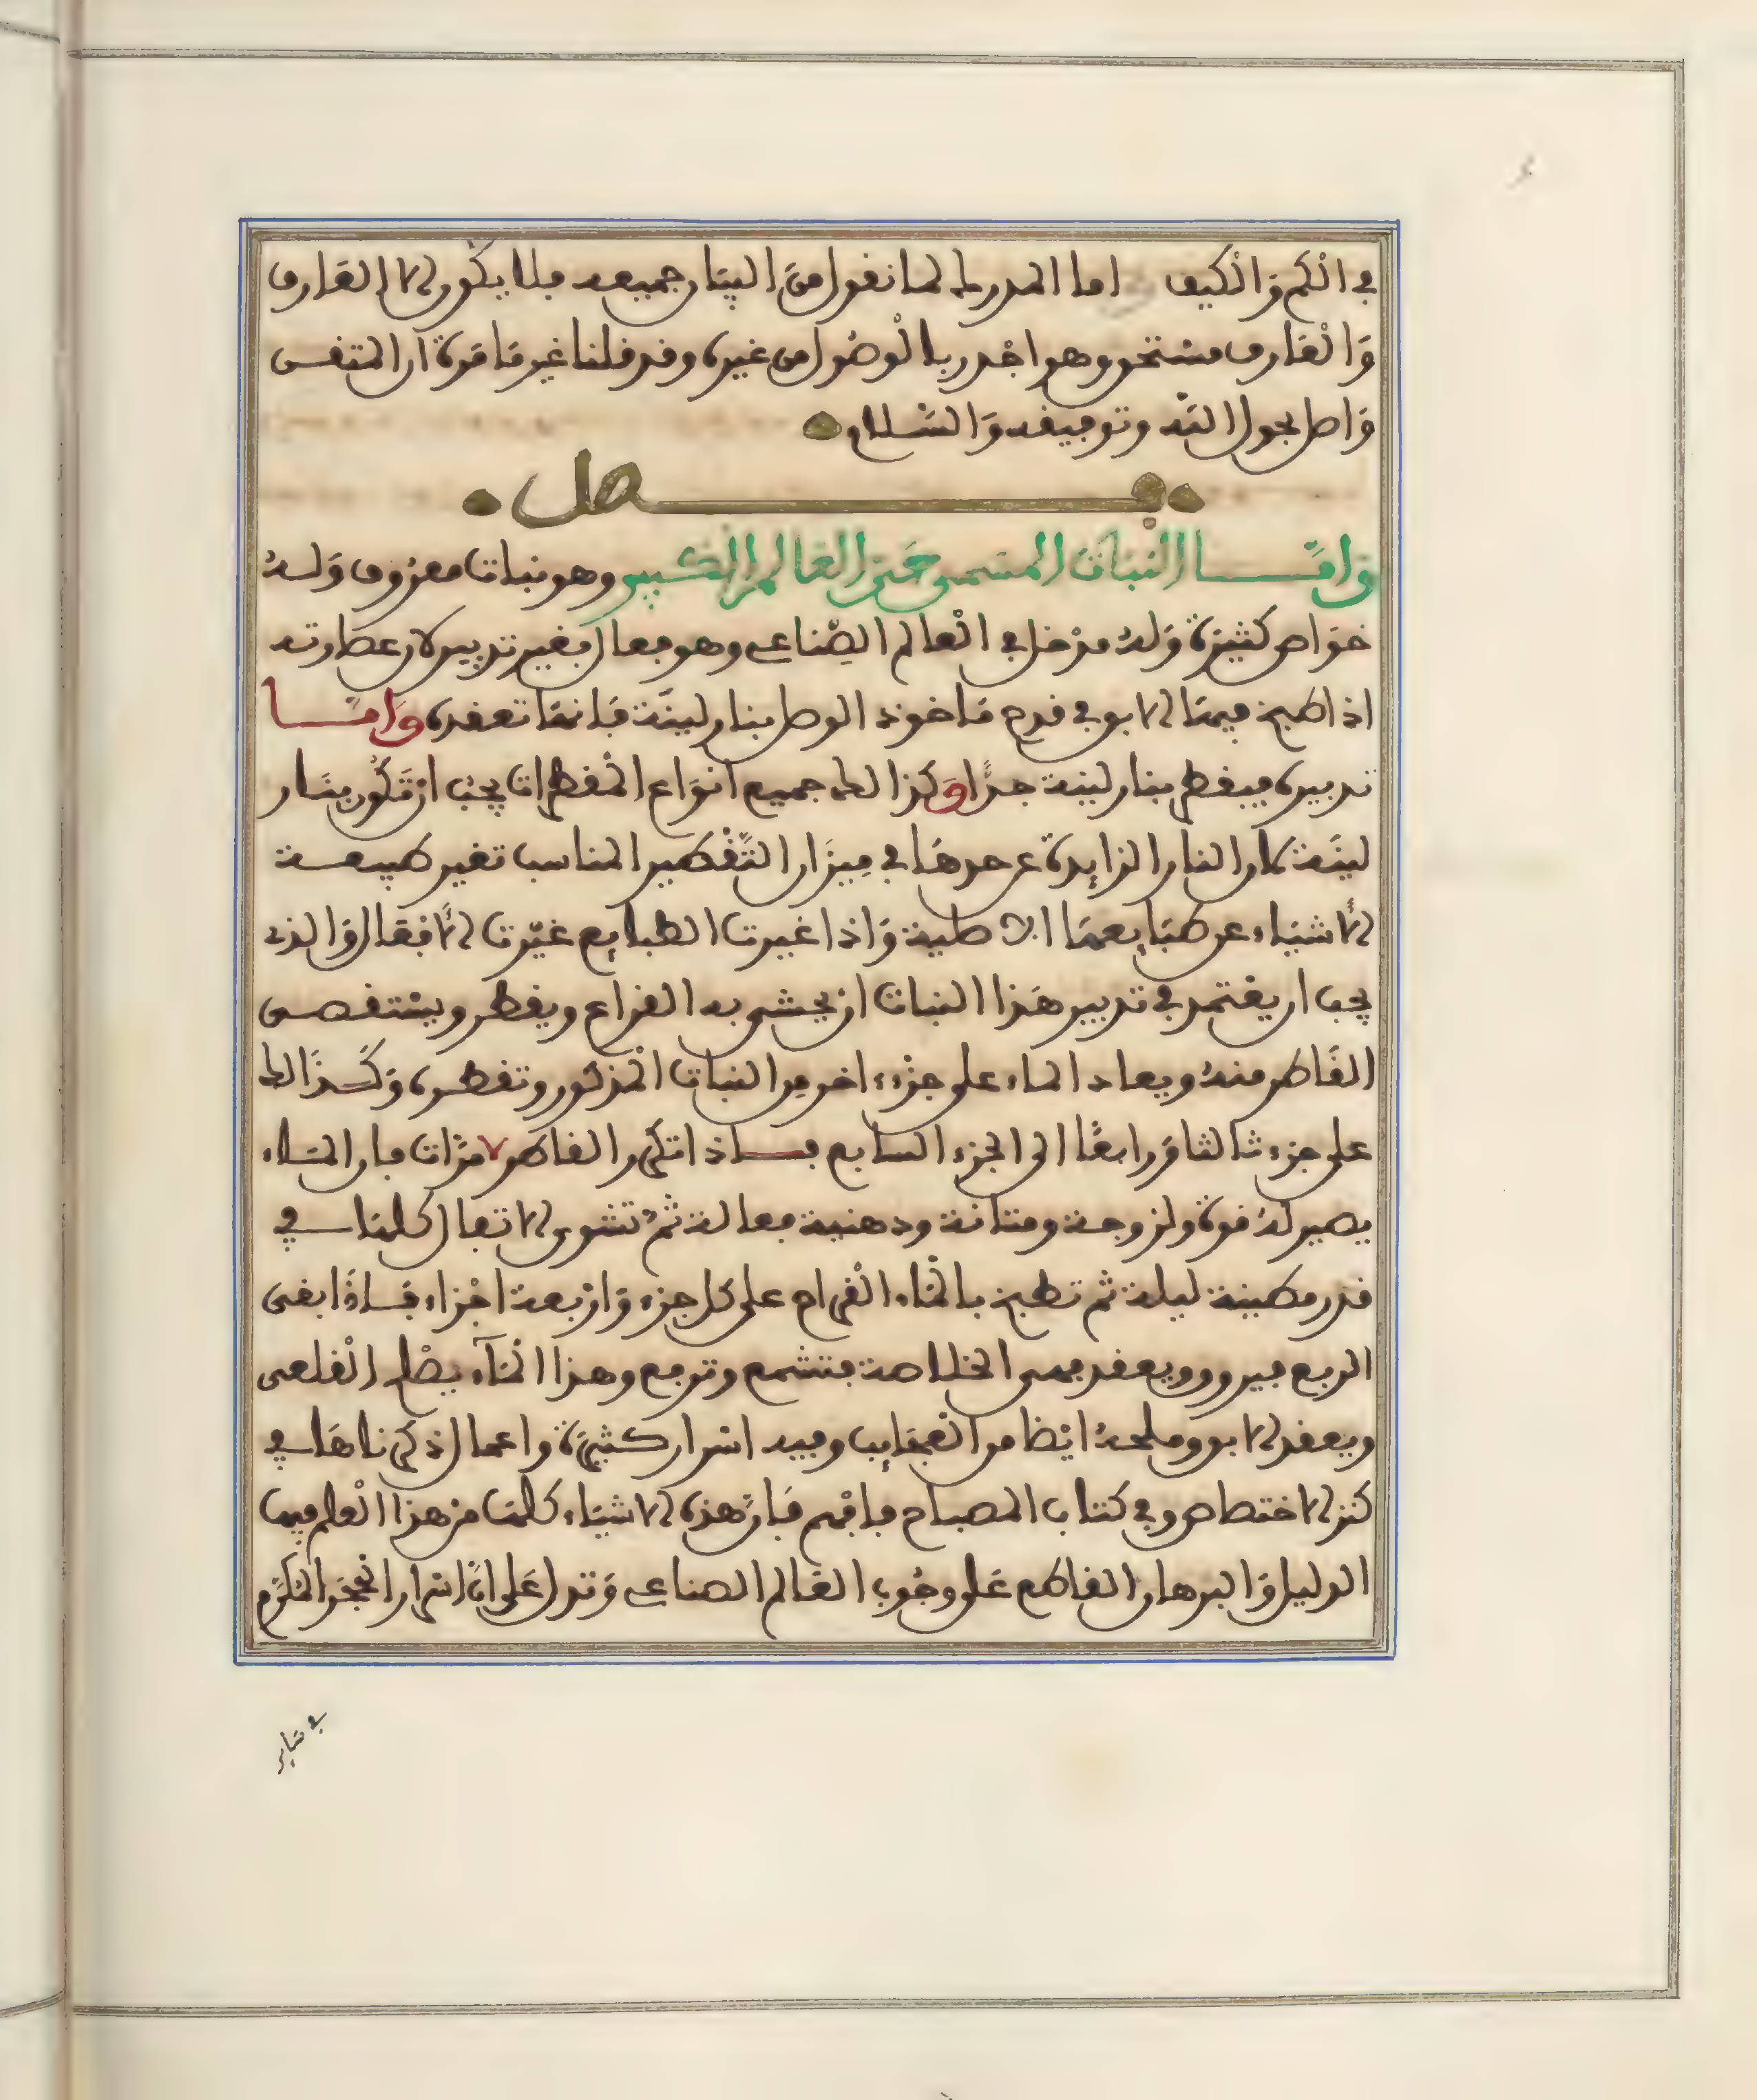 في الْكَم وَالْكيف اما المدرك لما نقول مِن البيَان جميعه فلا يكون الا العَارف
وَالْعَارف مستحق وهو اجْدر بالْوصُول من غيره وقد قلنا غير مَا مَرة ان المتقى
وَاصل بحول اللّه وتوفيقه وَالسَّلام
فصل
وَامَّا النبَات المسَمى حَيّ العَالم الكبير وهو نبات معرُوف وَلهُ
خوَاص كثيرَة وَلهُ مدْخل في الْعالم الصِّناعي وهو فعال بغير تدبير لان عصارته
اذا طبخ فيهَا الابق في قدح مَاخوذ الوصل بنار لينَة فَانهَا تعقده وَامَّا
تدبيره فيقطر بنار لينة جدًّا وَكذا لك جميع انوَاع الْمقطرات يجبُ ان تَكُون بنَار
لينَة لان النار الزايدة عن حدهَا في مِيزَان التَّقْطير المناسب تغير طبيعة
الاشيَاء عن طبَايعهَا الاصلية وَاذا غيرت الطبايع غيّرت الافعال وَالذي
يجب ان يعْتمد في تدبير هَذا النبات ان يحشى به القراع ويقطر ويسْتقصى
القَاطر منهُ ويعاد الماء على جزء اخر مِن النبات الْمذكور وتقطره وَكَذَا لك
على جزء ثالثا وَرابعًا الى الجزء السابع فاذا تكَرر القاطر ٧ مرّات فان المَاء
يصير لهُ قوة ولزوجة ومتانة ودهنية فعالة ثمّ تشوى الاتفال كلهَا في
قدر مطينة ليلة ثم تطبخ بالْمَاء الْقراح على كل جزء وَارْبعة اجْزاء فَاذَا بقى
الربع فيروق ويعقد فهى الخلاصة فتشمع وترفع وهذا الْمَآء يصْلح الْقلعى
ويعقد الابق وملحهُ ايْضا من الْعجَايب وفيه اسْرار كثيرَة واعمال ذكرناهَا في
كنز الاختصاص وفي كتاب المصباح فافهم فَان هذه الاشيَاء كلهَا من هذا الْعلم فيها
الدليل وَالبرهان القاطع عَلى وجُوب العَالم الصناعي وَتدل عَلى انَّ اسْرار الحجَر المُكرَّم
في سَاير